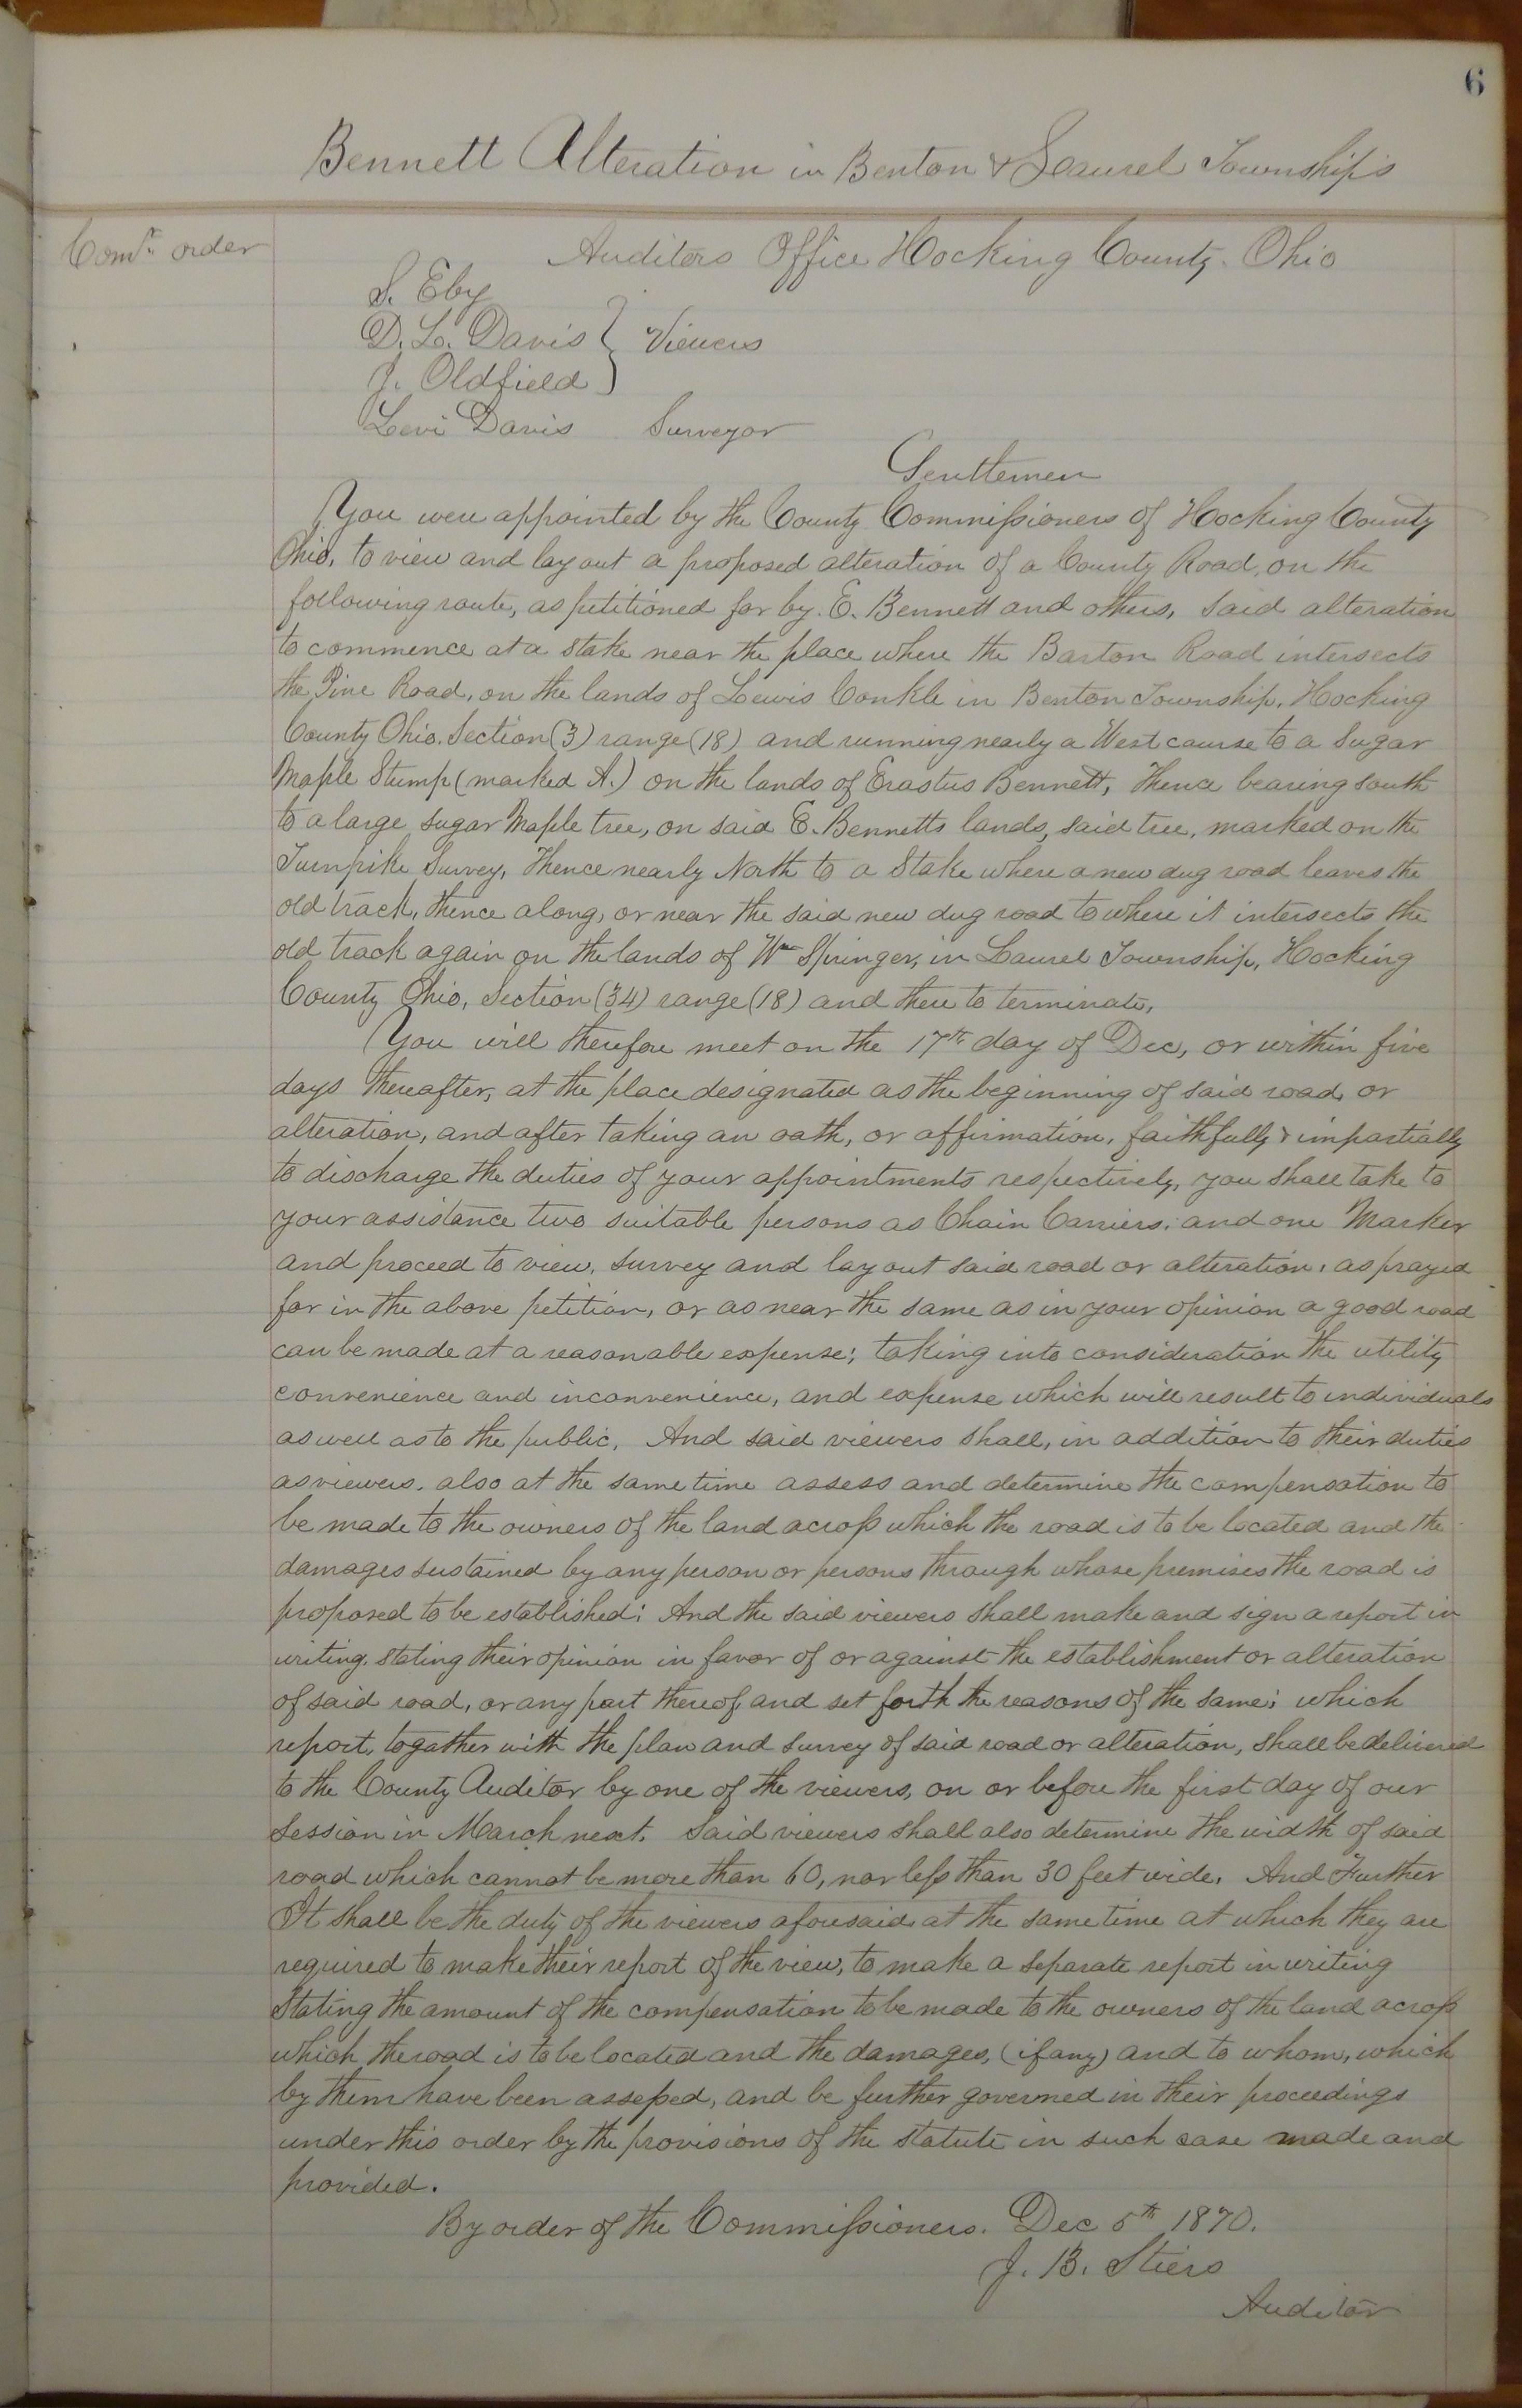 6
Bennett Alteration in Benton & Laurel Township's
Comrs order
Auditors Office Hocking County. Ohio
S. Eby
D. L. Davis } Viewers
J. Oldfield
Levi Davis Surveyor
Gentlemen
You were appointed by the County Commissioners of Hocking County
Ohio, to view and lay out a proposed alteration of a County Road, on the
following route, as petitioned for by. E. Bennett and others, Said alteration
to commence at a Stake near the place where the Barton Road intersects
the Pine Road, on the lands of Lewis Conkle in Benton Township, Hocking
County Ohio. Section (3) range (18) and running nearly a West course to a Sugar
Maple Stump (marked A.) on the lands of Erastus Bennett, Thence bearing South
to a large sugar Maple tree, on said E. Bennetts lands, said tree, marked on the
Turnpike Survey, Thence nearly North to a Stake where a new dug road leaves the
old track, thence along, or near the said new dug road to where it intersects the
old track again on the lands of Wm Springer, in Laurel Township, Hocking
County Ohio, Section (34) range (18) and there to terminate.
You will therefore meet on the 17th day of Dec, or within five
days thereafter, at the place designated as the beginning of said road, or
alteration, and after taking an oath, or affirmation, faithfully & impartially
to discharge the duties of your appointments respectively, you shall take to
your assistance two suitable persons as Chain Carriers, and one Marker
and proceed to view, survey and lay out said road or alteration, as prayed
for in the above petition, or as near the same as in your opinion a good road
can be made at a reasonable expense; taking into consideration the utility
convenience and inconvenience, and expense which will result to individuals
as well as to the public, And said viewers shall, in addition to their duties
as viewers, also at the same time assess and determine the compensation to
be made to the owners of the land across which the road is to be located and the
damages sustained by any person or persons through whose premises the road is
proposed to be established; And the said viewers shall make and sign a report in
writing, stating their opinion in favor of or against the establishment or alteration
of said road, or any part thereof, and set forth the reasons of the same; which
report, togather with the plan and survey of said road or alteration, shall be delivered
to the County Auditor by one of the viewers, on or before the first day of our
Session in March next. Said viewers shall also determine the width of said
road which cannot be more than 60, nor less than 30 feet wide. And Further
It shall be the duty of the viewers aforesaid at the same time at which they are
required to make their report of the view, to make a separate report in writing
Stating the amount of the compensation to be made to the owners of the land across
which the road is to be located and the damages, (if any) and to whom, which
by them have been assessed, and be further governed in their proceedings
under this order by the provisions of the statute in such case made and
provided.
By order of the Commissioners. Dec 5th 1870.
J. B. Stiers
Auditor